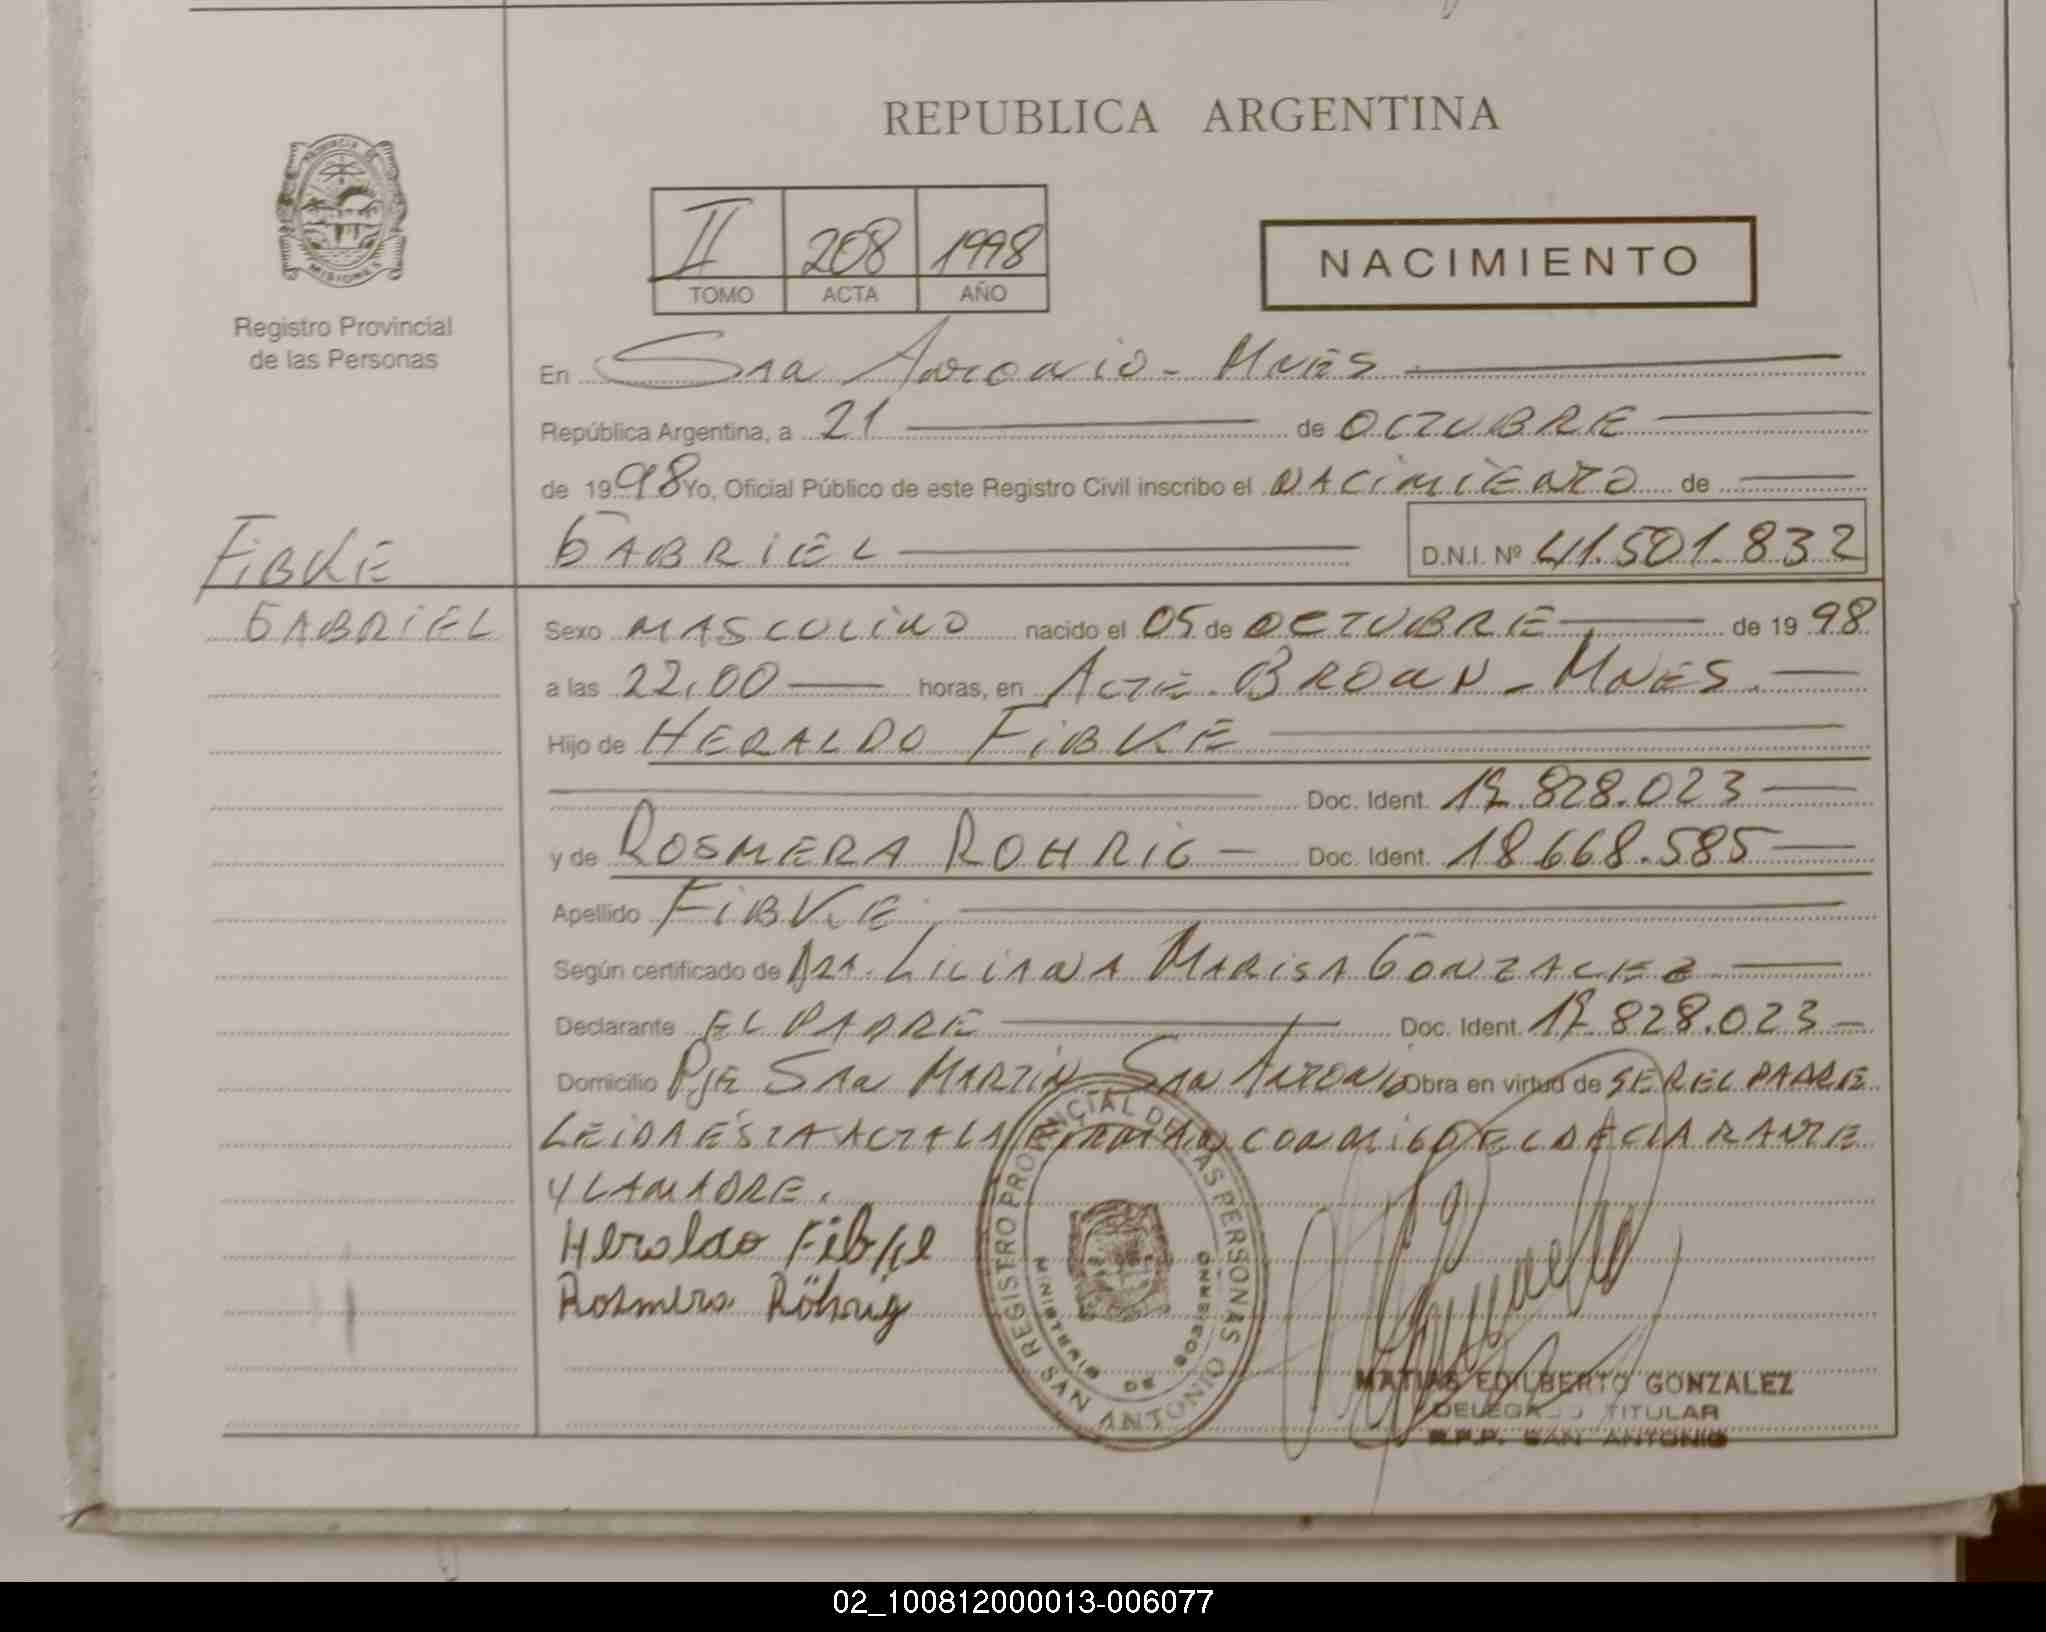 REPUBLICA ARGENTINA
PROVINCIA DE
MISIONES
Registro Provincial
de las Personas
II 208 1998
TOMO ACTA AÑO
NACIMIENTO
En San Antonio - Mnes
República Argentina, a 21 de OCTUBRE
de 1998 Yo, Oficial Público de este Registro Civil inscribo el NACIMIENTO de
FIBKE
GABRIEL D.N.I. Nº 41.501.832
GABRIEL
Sexo MASCULINO nacido el 05 de OCTUBRE de 1998
a las 22,00 horas, en ALTE. BROWN - MNES.
Hijo de HERALDO FIBKE
Doc. Ident. 17.828.023
y de ROSMERA ROHRIG - Doc. Ident. 18.668.585
Apellido FIBKE
Según certificado de DRA. LILIANA MARISA GONZALEZ
Declarante EL PADRE Doc. Ident. 17.828.023
Domicilio PJE SAN MARTIN SAN ANTONIO Obra en virtud de SER EL PADRE
LEIDA ESTA ACTA LA FIRMAN CONMIGO EL DECLARANTE
Y LA MADRE.
Heraldo Fibke
Rosmera Röhrig
REGISTRO PROVINCIAL DE LAS PERSONAS
MINISTERIO DE GOBIERNO
SAN ANTONIO
MATIAS EDILBERTO GONZALEZ
DELEGADO TITULAR
R.P.P. SAN ANTONIO
02_100812000013-006077